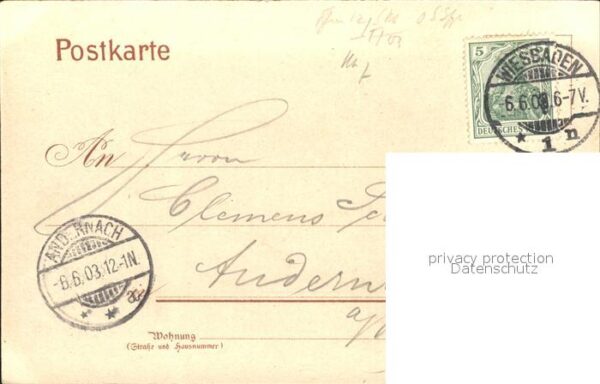 Postkarte
5
DEUTSCHES
WIESBADEN
6.6.03.6-7V.
* 1 n
An Herrn
Clemens
Andern
a/
ANDERNACH
-6.6.03.12-1N.
* *
Wohnung
(Straße und Hausnummer)
privacy protection
Datenschutz